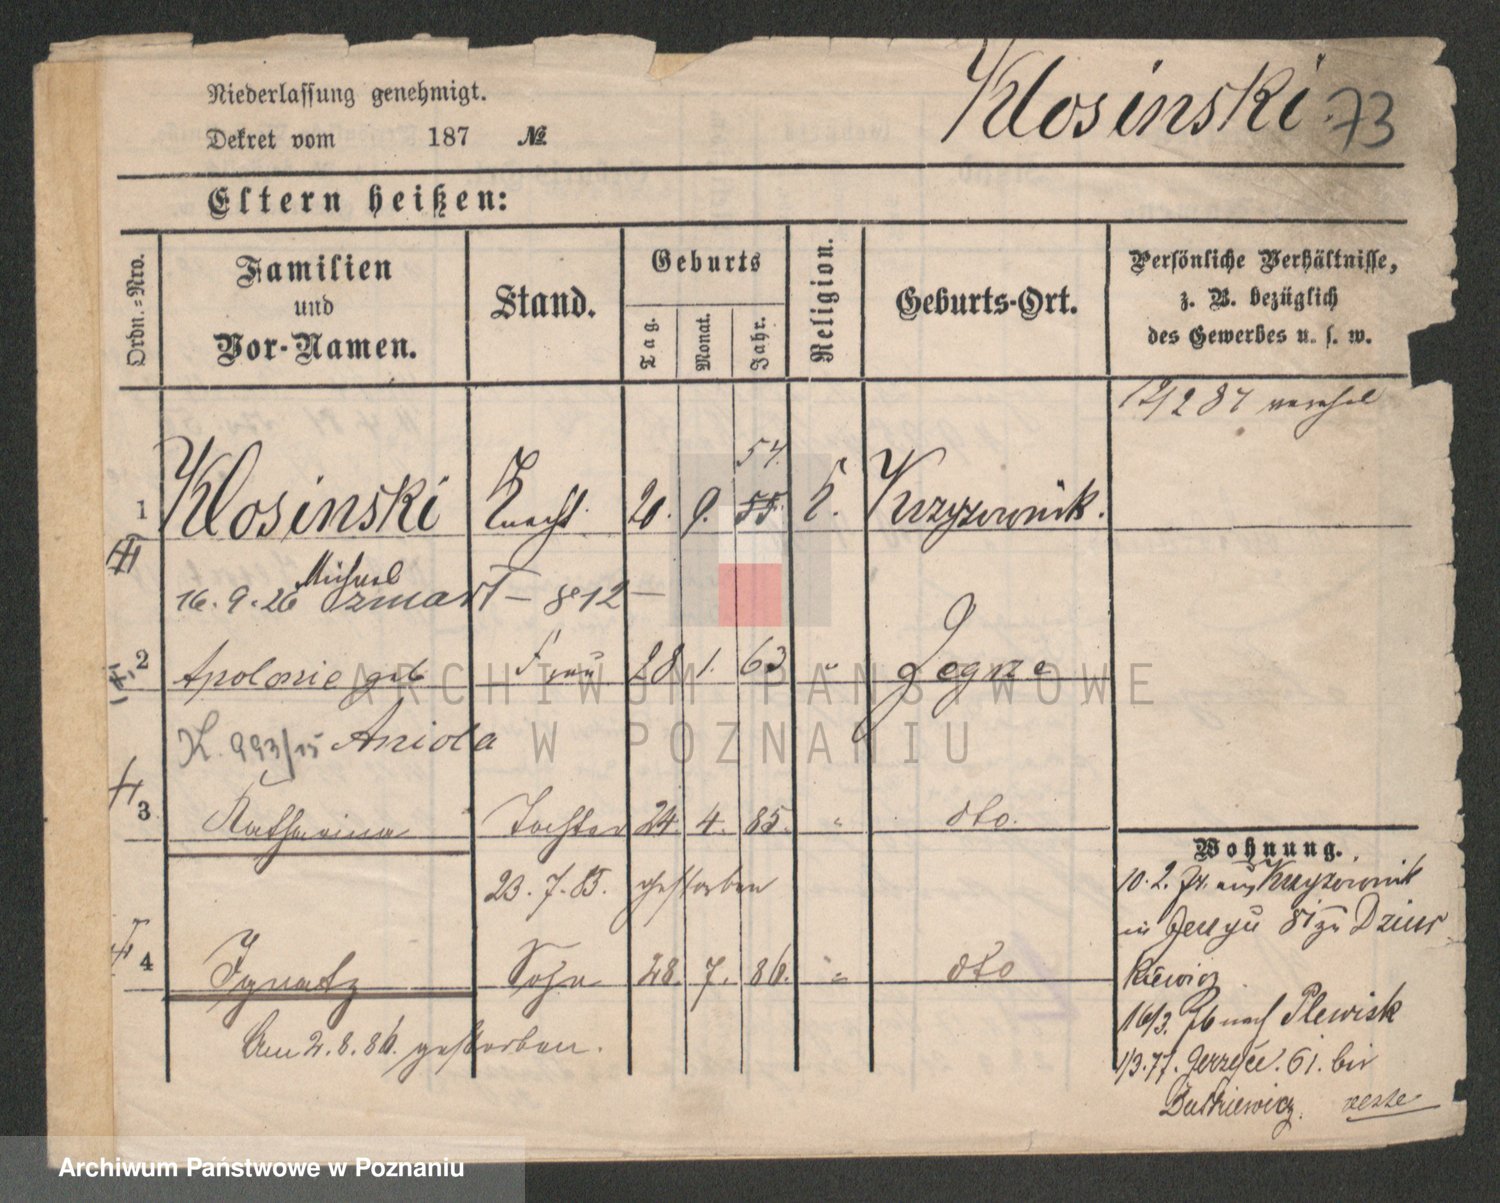 Niederlassung genehmigt.
Klosinski 73
Dekret vom 187 №
Eltern heißen:
Ordn.-Nro.
Familien
und
Vor-Namen.
Stand.
Geburts
Tag.
Monat.
Jahr.
Religion.
Geburts-Ort.
Persönliche Verhältnisse,
z. B. bezüglich
des Gewerbes u. s. w.
12/2 87
54.
1 Klosinski Knecht 20. 9. 55. K. Krzyzownik.
Michael
16.9.26 zmarł – 812 –
2 Apolonie geb Frau 28 1. 63 "
K. 993/15 Aniola
3 Katharina Tochter 24. 4. 85. " dto.
23.7.85. gestorben
4 Ignatz Sohn 28. 7. 86. " dto
Am 2.8.86. gestorben.
Wohnung.
10.2. aus Krzyzownik
in 81
16/3. 76 nach Plewisk
1/3.77. 61. bei
ARCHIWUM PAŃSTWOWE
W POZNANIU
Archiwum Państwowe w Poznaniu